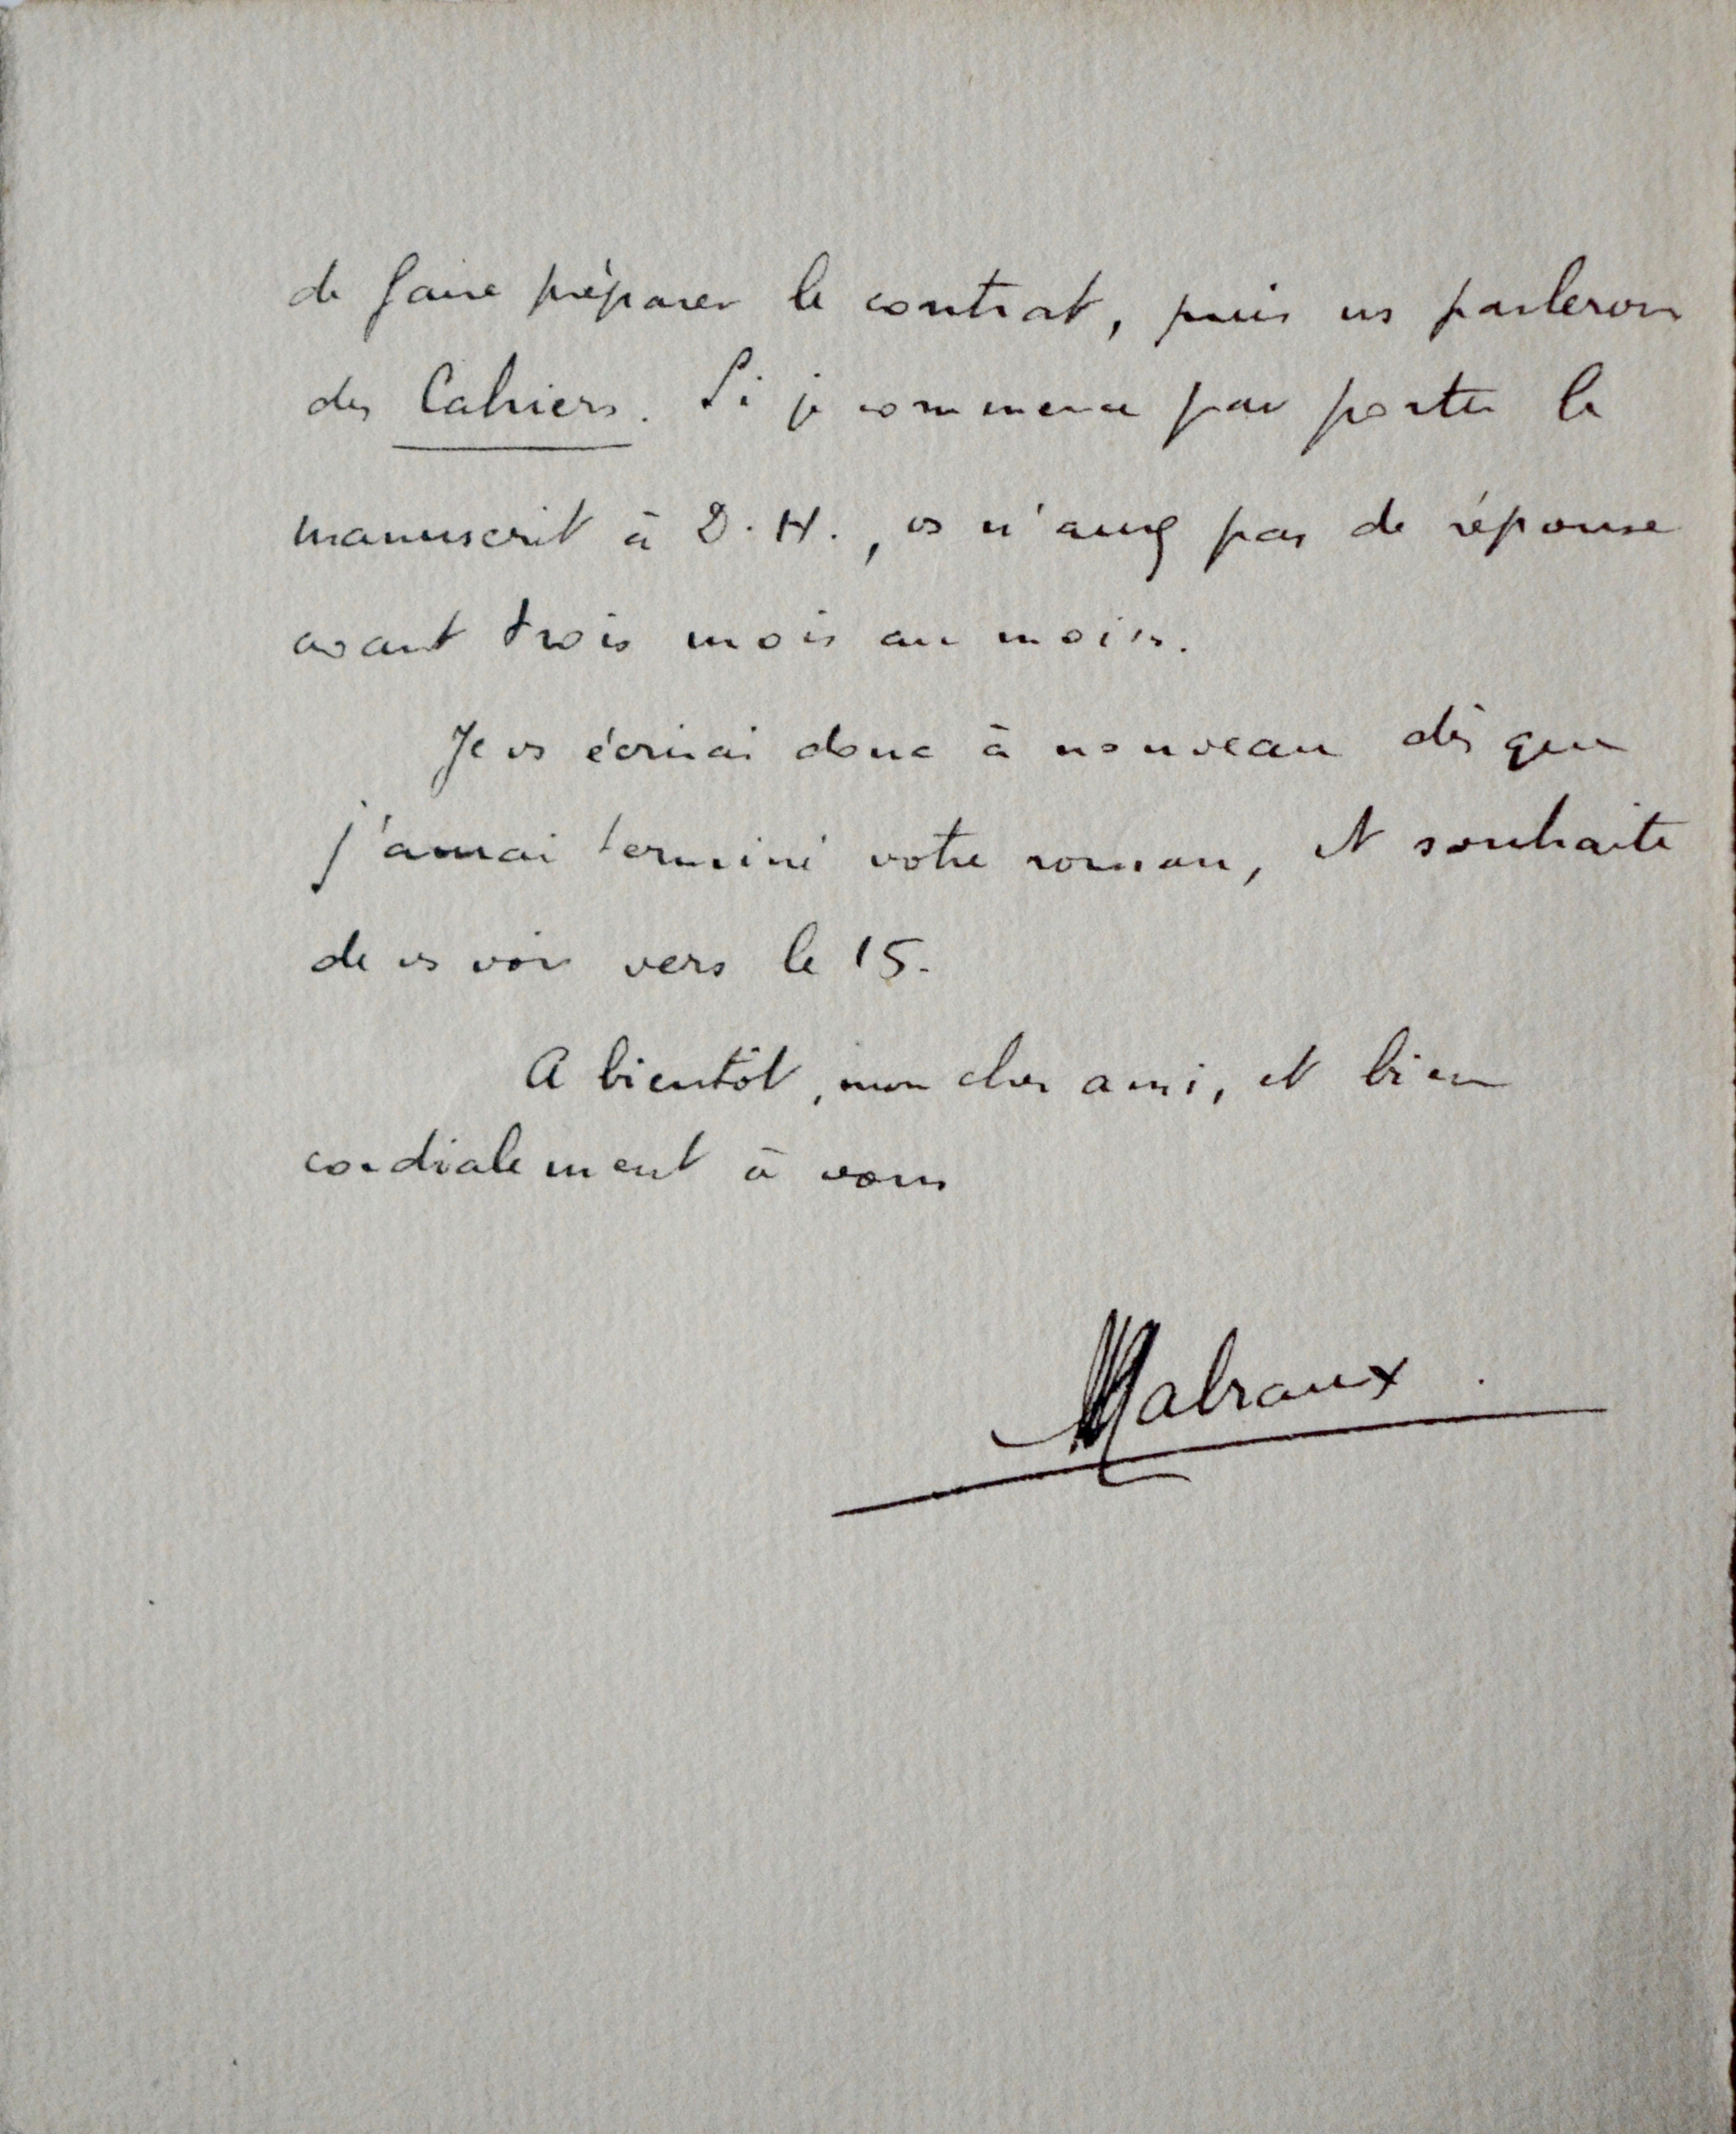 de faire préparer le contrat, puis ns parlerons
des Cahiers. Si je commence par porter le
manuscrit à D. H., vs n'aurez pas de réponse
avant trois mois au moins.
Je vs écrirai donc à nouveau dès que
j'aurai terminé votre roman, et souhaite
de vs voir vers le 15.
A bientôt, mon cher ami, et bien
cordialement à vous
Malraux